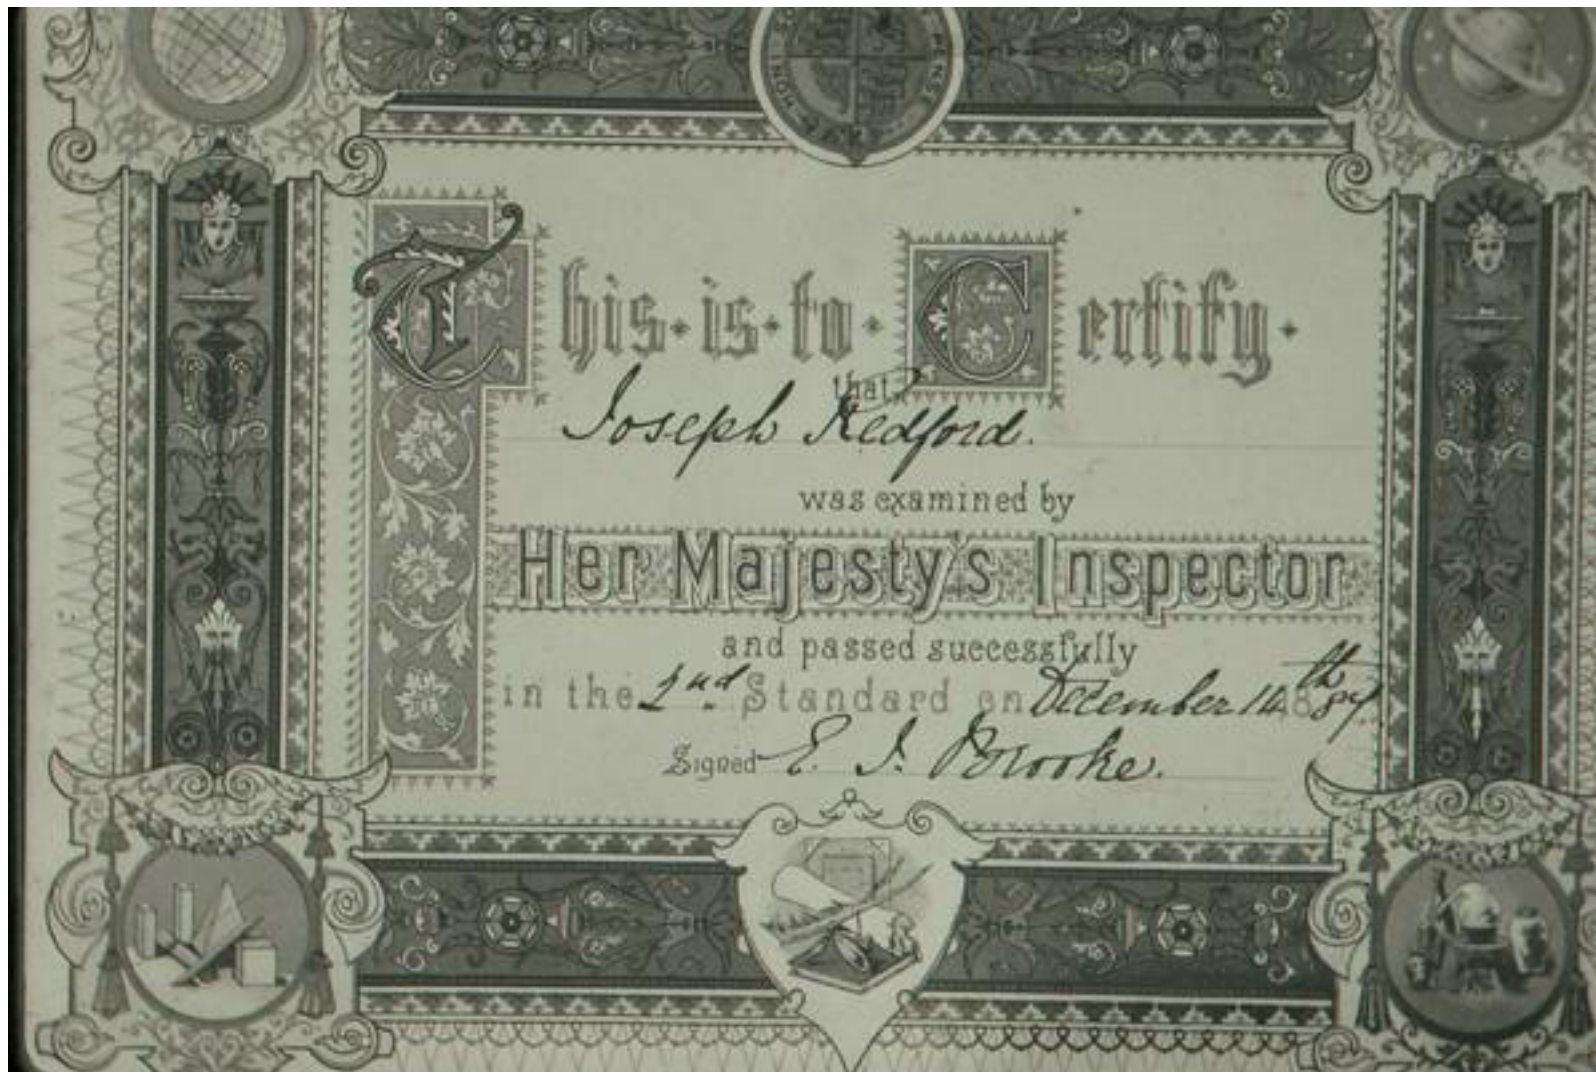 HONI SOIT PENSE
This · is · to · Certify ·
that
Joseph Redford.
was examined by
Her Majesty's Inspector
and passed successfully
in the 2nd Standard on December 14th
Signed E. J. Brooke.